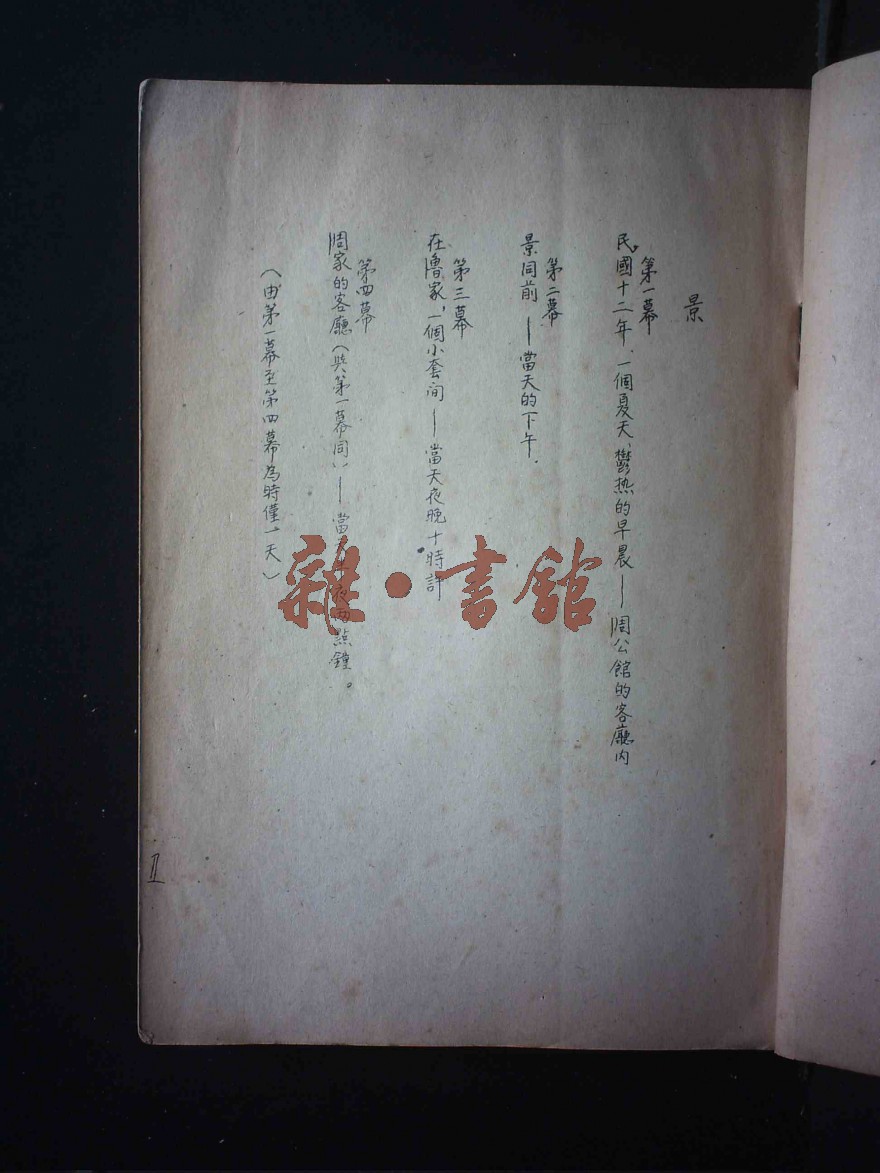 景
第一幕
民國十二年．一個夏天、鬱热的早晨——周公館的客廳内
第二幕
景同前——當天的下午．
第三幕
在魯家，一個小套间——當天夜晚十時許
第四幕
周家的客廳（與第一幕同）——當 夜两點鐘。
（由第一幕至第四幕為時僅一天）
II
雜·書館